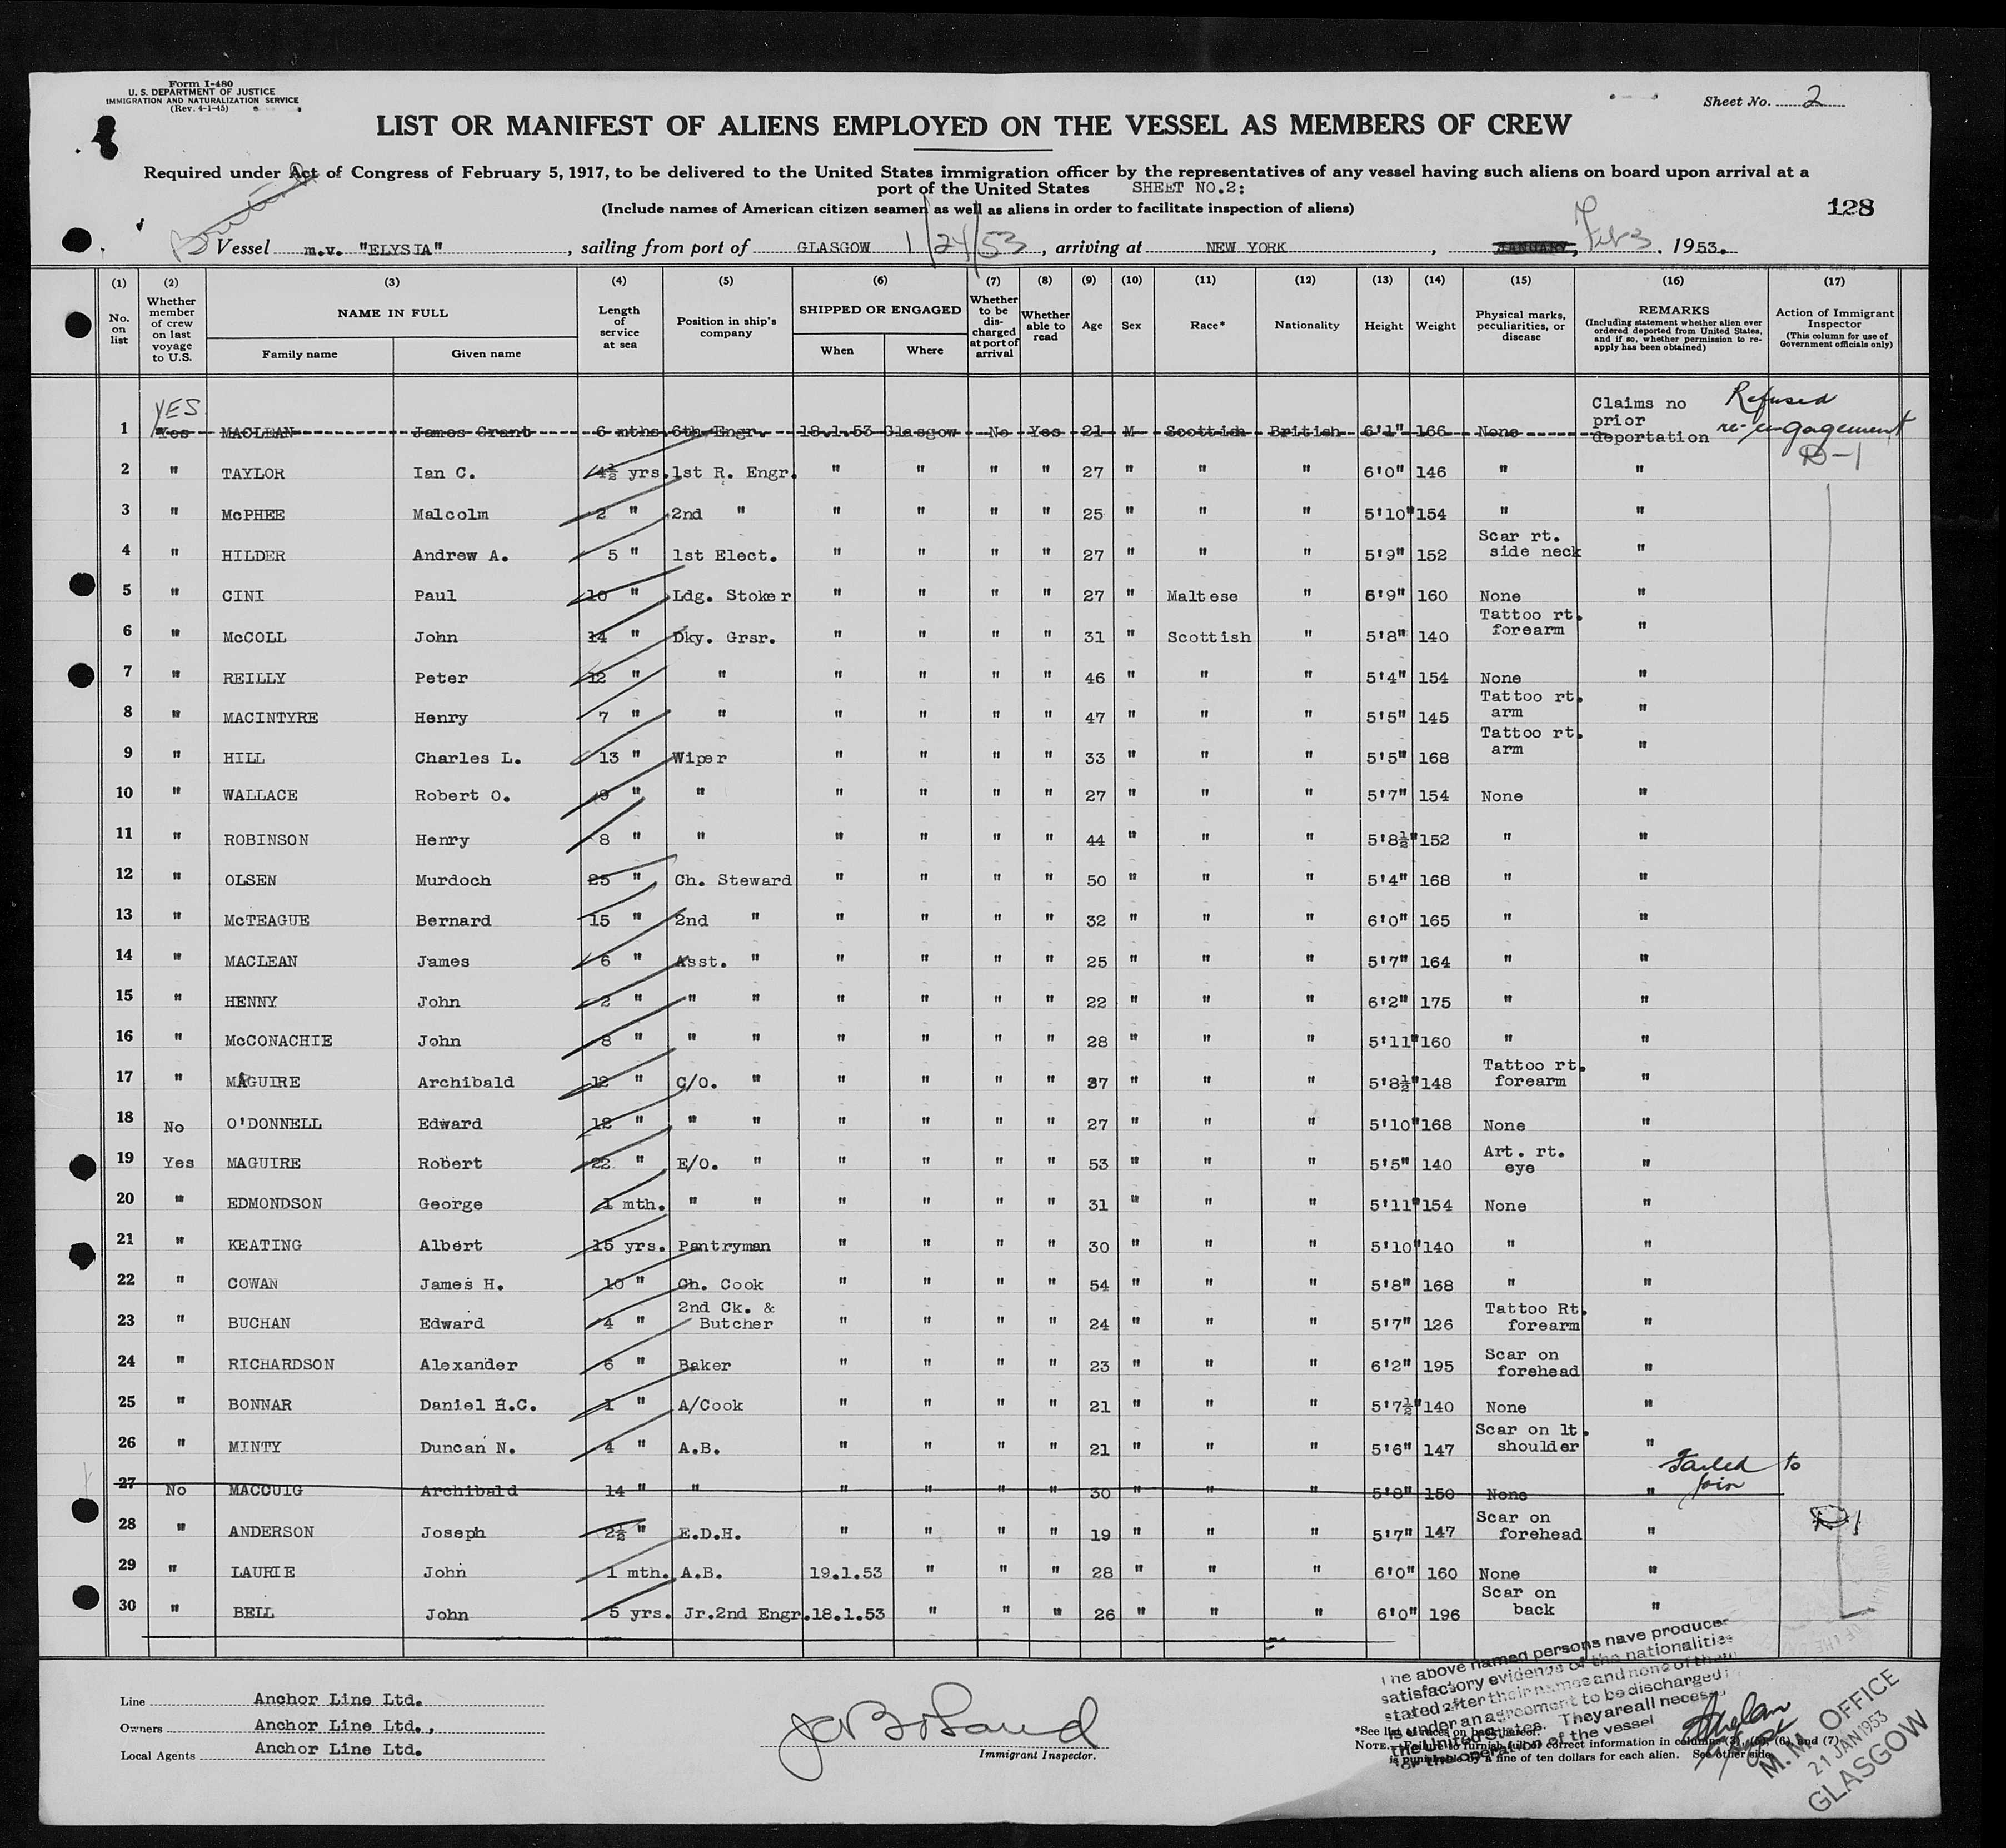 Form I-480
U. S. DEPARTMENT OF JUSTICE
IMMIGRATION AND NATURALIZATION SERVICE
(Rev. 4-1-45)
Sheet No. 2
LIST OR MANIFEST OF ALIENS EMPLOYED ON THE VESSEL AS MEMBERS OF CREW
Required under Act of Congress of February 5, 1917, to be delivered to the United States immigration officer by the representatives of any vessel having such aliens on board upon arrival at a
port of the United States SHEET NO.2:
(Include names of American citizen seamen as well as aliens in order to facilitate inspection of aliens)
128
Vessel m.v. "ELYSIA", sailing from port of GLASGOW 1/24/53, arriving at NEW YORK, JANUARY, Feb 3. 1953.
(1) (2) (3) (4) (5) (6) (7) (8) (9) (10) (11) (12) (13) (14) (15) (16) (17)
No. on list
Whether member of crew on last voyage to U.S.
NAME IN FULL
Family name Given name
Length of service at sea
Position in ship's company
SHIPPED OR ENGAGED
When Where
Whether to be discharged at port of arrival
Whether able to read
Age Sex Race* Nationality Height Weight
Physical marks, peculiarities, or disease
REMARKS
(Including statement whether alien ever ordered deported from United States, and if so, whether permission to re-apply has been obtained)
Action of Immigrant Inspector
(This column for use of Government officials only)
YES
1 Yes MACLEAN James Grant 6 mths 6th Engr. 18.1.53 Glasgow No Yes 21 M Scottish British 6'1" 166 None Claims no prior deportation Refused re-engagement
2 " TAYLOR Ian C. 4½ yrs. 1st R. Engr. " " " " 27 " " " 6'0" 146 " " D-1
3 " McPHEE Malcolm 2 " 2nd " " " " " 25 " " " 5'10" 154 " "
4 " HILDER Andrew A. 5 " 1st Elect. " " " " 27 " " " 5'9" 152 Scar rt. side neck "
5 " CINI Paul 10 " Ldg. Stoker " " " " 27 " Maltese " 6'9" 160 None "
6 " McCOLL John 14 " Dky. Grsr. " " " " 31 " Scottish " 5'8" 140 Tattoo rt. forearm "
7 " REILLY Peter 12 " " " " " " 46 " " " 5'4" 154 None "
8 " MACINTYRE Henry 7 " " " " " " 47 " " " 5'5" 145 Tattoo rt. arm "
9 " HILL Charles L. 13 " Wiper " " " " 33 " " " 5'5" 168 Tattoo rt. arm "
10 " WALLACE Robert O. 9 " " " " " " 27 " " " 5'7" 154 None "
11 " ROBINSON Henry 8 " " " " " " 44 " " " 5'8½" 152 " "
12 " OLSEN Murdoch 25 " Ch. Steward " " " " 50 " " " 5'4" 168 " "
13 " McTEAGUE Bernard 15 " 2nd " " " " " 32 " " " 6'0" 165 " "
14 " MACLEAN James 6 " Asst. " " " " " 25 " " " 5'7" 164 " "
15 " HENNY John 2 " " " " " " " 22 " " " 6'2" 175 " "
16 " McCONACHIE John 8 " " " " " " " 28 " " " 5'11" 160 " "
17 " MAGUIRE Archibald 12 " C/O. " " " " " 37 " " " 5'8½" 148 Tattoo rt. forearm "
18 No O'DONNELL Edward 12 " " " " " " " 27 " " " 5'10" 168 None "
19 Yes MAGUIRE Robert 22 " E/O. " " " " " 53 " " " 5'5" 140 Art. rt. eye "
20 " EDMONDSON George 1 mth. " " " " " " 31 " " " 5'11" 154 None "
21 " KEATING Albert 15 yrs. Pantryman " " " " 30 " " " 5'10" 140 " "
22 " COWAN James H. 10 " Ch. Cook " " " " 54 " " " 5'8" 168 " "
23 " BUCHAN Edward 4 " 2nd Ck. & Butcher " " " " 24 " " " 5'7" 126 Tattoo Rt. forearm "
24 " RICHARDSON Alexander 6 " Baker " " " " 23 " " " 6'2" 195 Scar on forehead "
25 " BONNAR Daniel H.C. 1 " A/Cook " " " " 21 " " " 5'7½" 140 None "
26 " MINTY Duncan N. 4 " A.B. " " " " 21 " " " 5'6" 147 Scar on lt. shoulder "
27 No MACCUIG Archibald 14 " " " " " " 30 " " " 5'8" 150 None " Failed to join
28 " ANDERSON Joseph 2½ " E.D.H. " " " " 19 " " " 5'7" 147 Scar on forehead " D-1
29 " LAURIE John 1 mth. A.B. 19.1.53 " " " 28 " " " 6'0" 160 None "
30 " BELL John 5 yrs. Jr.2nd Engr. 18.1.53 " " " 26 " " " 6'0" 196 Scar on back "
The above named persons have produced
satisfactory evidence of the nationalities
stated after their names and none of them
is under an agreement to be discharged in
the United States. They are all necessary
for the operation of the vessel
Line Anchor Line Ltd.
Owners Anchor Line Ltd.,
Local Agents Anchor Line Ltd.
Immigrant Inspector.
*See list of races on back hereof.
NOTE.—Failure to furnish full or correct information in columns (3), (5), (6), and (7)
is punishable by a fine of ten dollars for each alien. See other side.
M.M. OFFICE
21 JAN 1953
GLASGOW